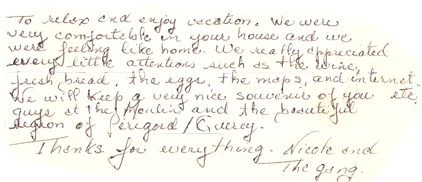 To relax and enjoy vacation. We were
very comfortable in your house and we
were feeling like home. We really appreciated
every little attentions such as the wine,
fresh bread, the eggs, the maps, and internet etc.
We will keep a very nice souvenir of you
guys at the Moulin and the beautiful
region of Périgord / Quercy.
Thanks for everything. Nicole and
The gang.